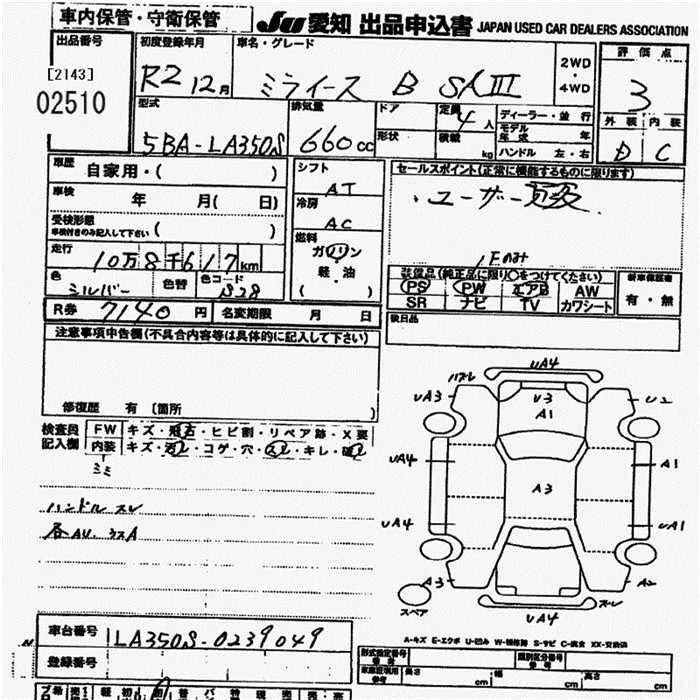 車内保管・守衛保管
JU 愛知 出品申込書 JAPAN USED CAR DEALERS ASSOCIATION
出品番号 初度登録年月 車名・グレード 評価点
[2143] R2 12月 ミライース B SAⅢ 2WD・4WD 3
02510
型式 排気量 ドア 定員 ディーラー・並行 外装 内装
5BA-LA350S 660cc 形状 4人 積載 kg モデル年式 年 D C
ハンドル 左・右
車歴 自家用・( ) シフト セールスポイント(正常に機能するものに限ります)
AT ・ユーザー買取
車検 年 月( 日) 冷房
AC
受検形態
車検付きのみ記入して下さい ( ) 燃料
走行 10万8千617km ガソリン・軽・油 ( ) 1Eのみ
装備品(純正品に限り○をつけてください) 新車保証書
色 シルバー 色替 色コード S28 PS PW エアB AW 有・無
SR ナビ TV カワシート
R券 7140円 名変期限 月 日 後日品
注意事項申告欄(不具合内容等は具体的に記入して下さい)
修復歴 有 〔箇所 〕
検査員記入欄 FW キズ・飛石・ヒビ割・リペア跡・X要
内装 キズ・汚レ・コゲ・穴・スレ・キレ・破レ
ミミ
ハンドルスレ
各AU.ヨスA
ハズレ UA4
UA3 U3 U2
A1
UA4 A1
A3
UA4 UA1
A3 A2
スペア UA4 スレ
A-キズ E-エクボ U-凹み W-補修跡 S-サビ C-腐食 XX-交換済
車台番号 LA350S-0239049
型式指定番号 類別区分番号
参考 参考
登録番号 車庫証明用参考 長さ cm 幅 cm 高さ cm